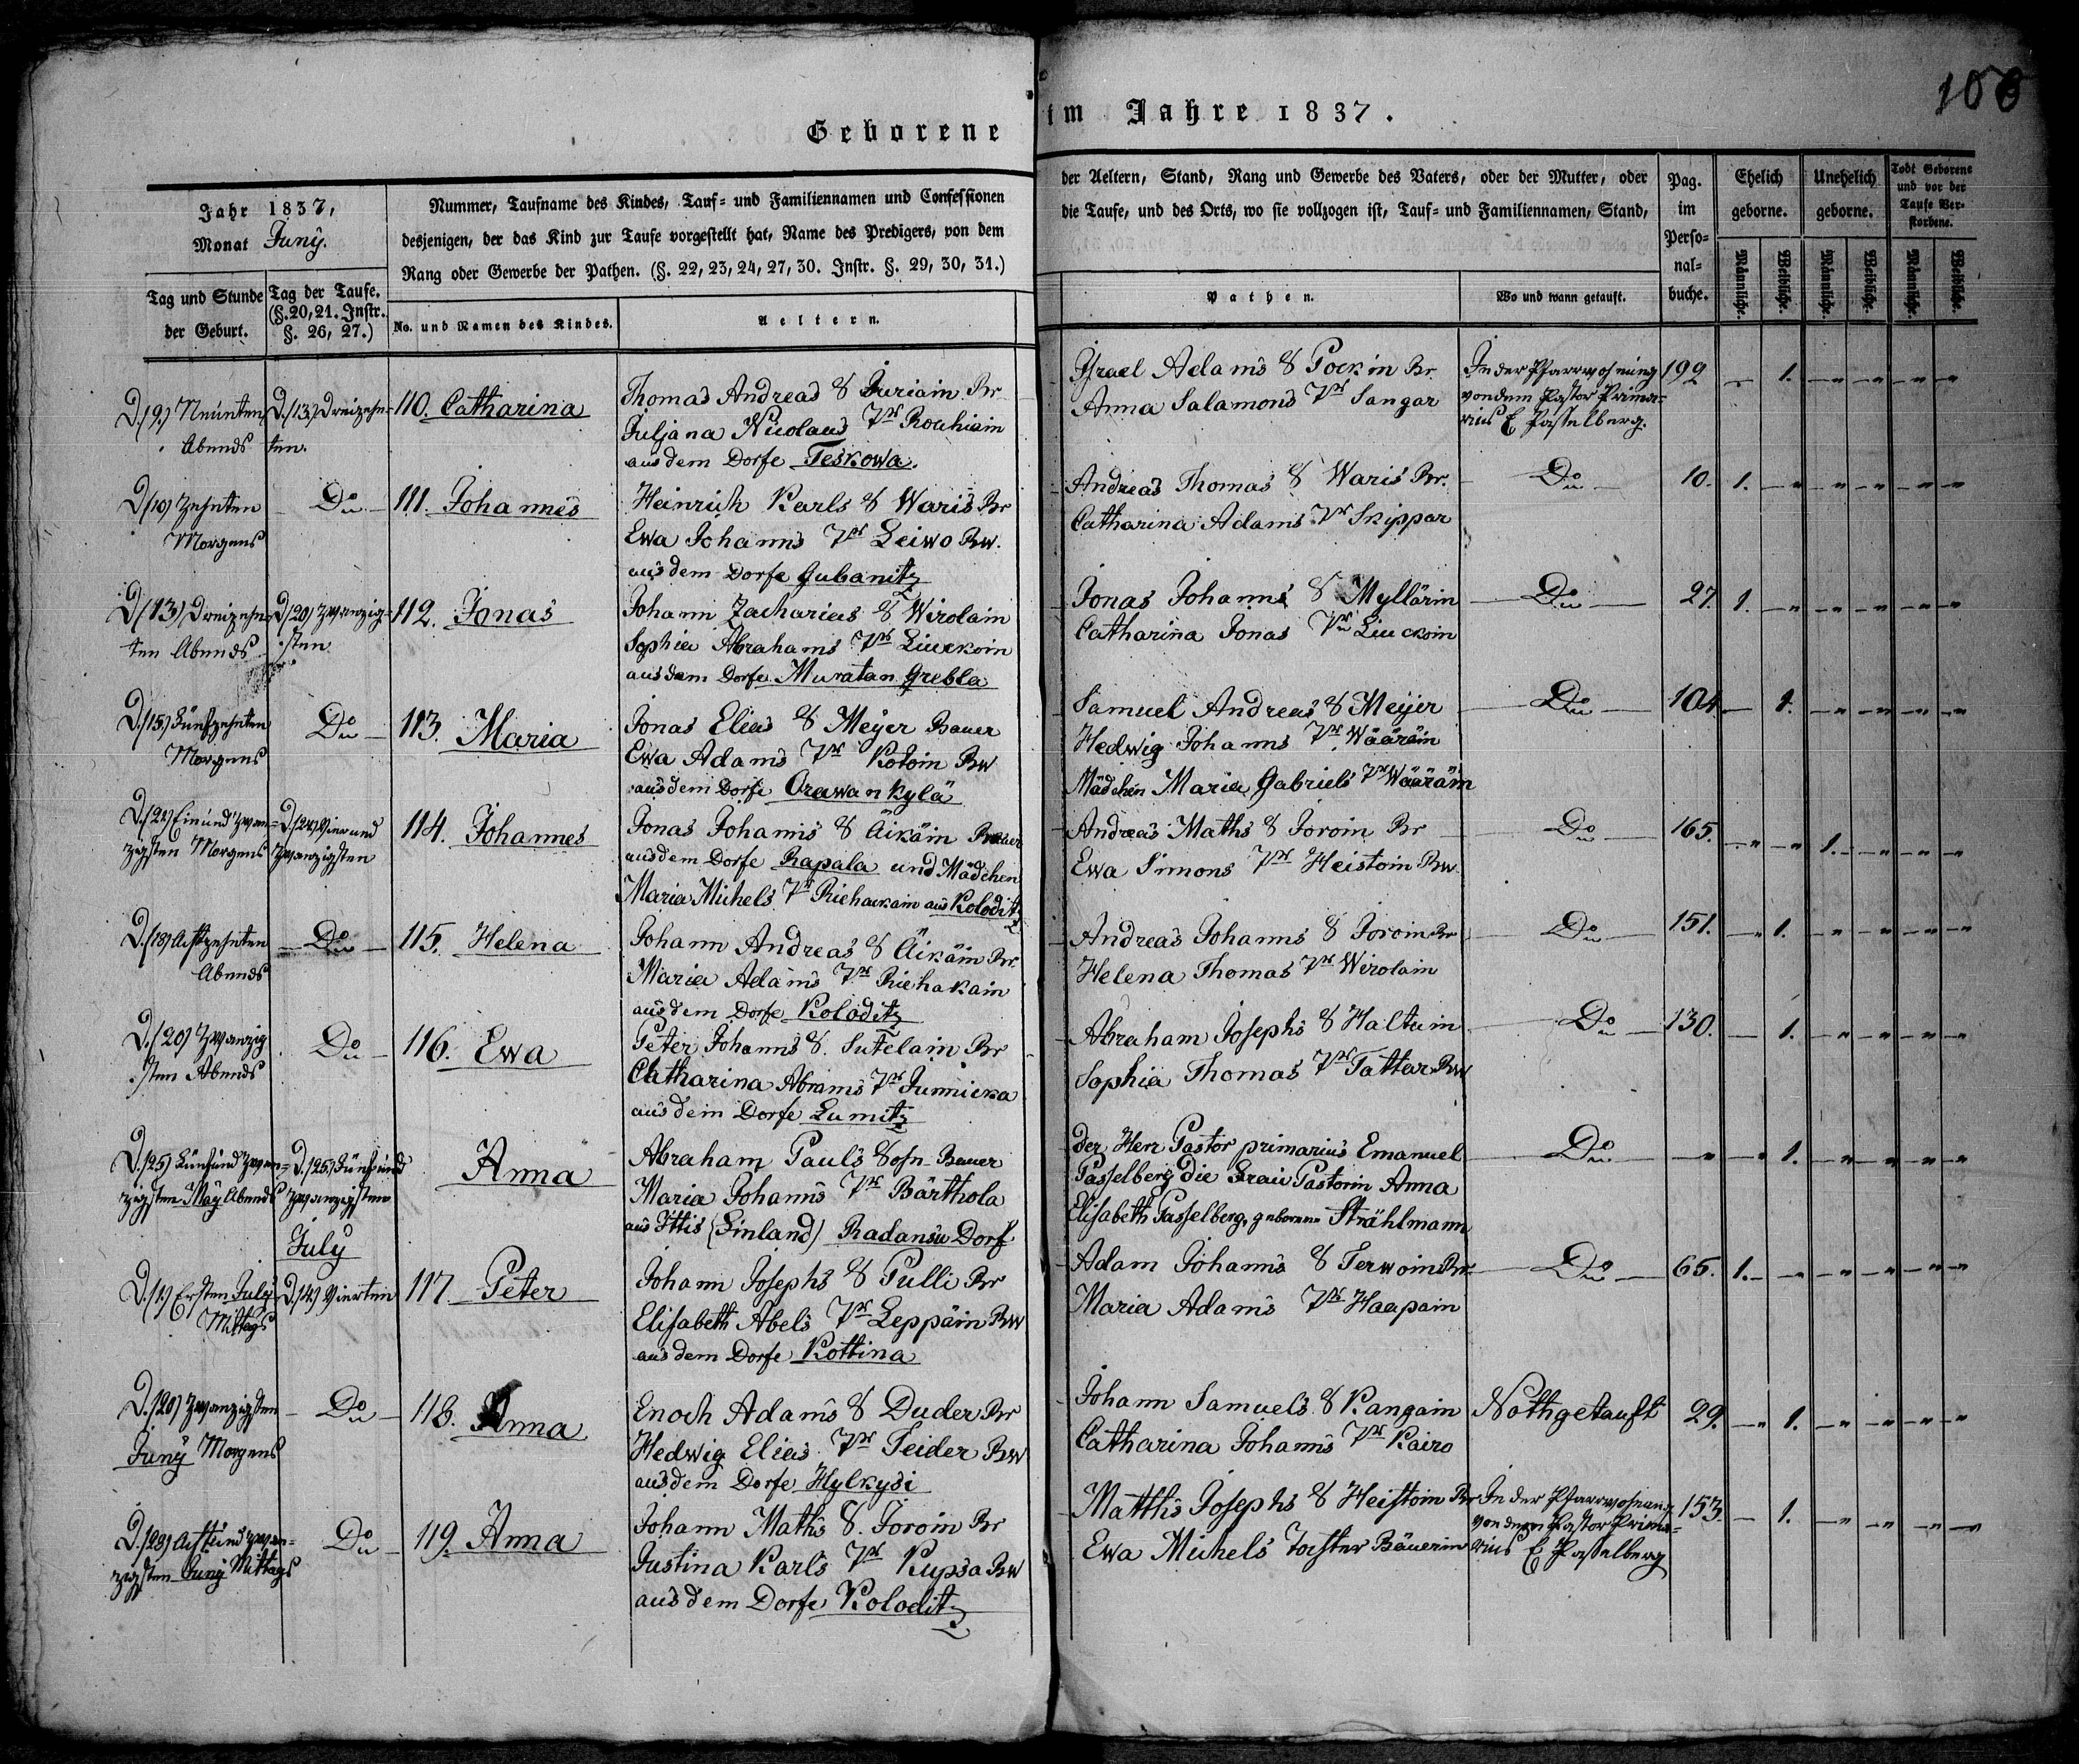 106
Geborene im Jahre 1837.
Jahr 1837,
Monat Juny.
Nummer, Taufname des Kindes, Tauf= und Familiennamen und Confessionen der Aeltern, Stand, Rang und Gewerbe des Vaters, oder der Mutter, oder
desjenigen, der das Kind zur Taufe vorgestellt hat, Name des Predigers, von dem die Taufe, und des Orts, wo sie vollzogen ist, Tauf= und Familiennamen, Stand,
Rang oder Gewerbe der Pathen. (§. 22, 23, 24, 27, 30. Instr. §. 29, 30, 31.)
Tag und Stunde
der Geburt.
Tag der Taufe.
(§. 20, 21. Instr.
§. 26, 27.)
No. und Namen des Kindes.
Aeltern.
Pathen.
Wo und wann getauft.
Pag.
im
Perso=
nal=
buche.
Ehelich
geborne.
Unehelich
geborne.
Todt Geborene
und vor der
Taufe Ver=
storbene.
Männliche. Weibliche. Männliche. Weibliche. Männliche. Weibliche.
D. (9.) Neunten
Abends
D. (13.) Dreizehn=
ten.
110. Catharina
Thomas Andreas S Juriain Br
Juljana Nicolaus Tr Rouhiain
aus dem Dorfe Teskowa.
Israel Adams S Pockin Br.
Anna Salamons Tr Sangar
In der Pfarrwohnung
von dem Pastor Prima=
rius E Passelberg.
192 - 1. - - - -
D (10) Zehnten
Morgens
Do
111. Johannes
Heinrich Karls S Waris Br
Ewa Johanns Tr Leiwo Bw.
aus dem Dorfe Gubanitz
Andreas Thomas S Waris Br.
Catharina Adams Tr Skippar
Do
10. 1. - - - - -
D (13) Dreizehn=
ten Abends
D (20) Zwanzig=
sten
112. Jonas
Johann Zacharias S Wirolain
Sophia Abrahams Tr Liuckoin
aus dem Dorfe Muratan Grebla
Jonas Johanns S Myllärin
Catharina Jonas Tr Liuckoin
Do
27. 1. - - - - -
D. (15.) Fünfzehnten
Morgens
Do
113. Maria
Jonas Elias S Meyer Bauer
Ewa Adams Tr Kotoin Bw
aus dem Dorfe Orawan kylä
Samuel Andreas S Meijer
Hedwig Johanns Tr Wääräin
Mädchen Maria Gabriels Tr Wääräin
Do
104 - 1. - - - -
D. (21) Einund zwan=
zigsten Morgens
D. (24) Vierund
zwanzigsten
114. Johannes
Jonas Johanns S Äikäin Bauer
aus dem Dorfe Rapala und Mädchen
Maria Michels Tr Riehackain aus Koloditz
Andreas Maths S Joroin Br
Ewa Simons Tr Heistoin Bw.
Do
165. - - 1. - - -
D. (18) Achtzehnten
Abends
Do
115. Helena
Johann Andreas S Äikäin Br.
Maria Adams Tr Riehakain
aus dem Dorfe Koloditz
Andreas Johanns S Joroin Br
Helena Thomas Tr Wirolain
Do
151. - 1. - - - -
D. (20) Zwanzig
sten Abends
Do
116. Ewa
Peter Johanns S. Sutelain Br
Catharina Abrams Tr Junnicka
aus dem Dorfe Lumitz
Abraham Josephs S Haltuin
Sophia Thomas Tr Tattar Bw
Do
130. - 1. - - - -
D. (25) Fünfund zwan=
zigsten May Abends
D. (25.) Fünfund
zwanzigsten
Anna
Abraham Pauls Sohn Bauer
Maria Johanns Tr Bärthola
aus Ittis (Finland) Radansu Dorf
der Herr Pastor primarius Emanuel
Passelberg die Frau Pastorin Anna
Elisabeth Passelberg, geborene Strählmann
Do
- - 1. - - - -
July
D. (1.) Ersten July
Mittags
D. (4.) Vierten
117. Peter
Johann Josephs S Pulli Br
Elisabeth Abels Tr Leppäin Bw
aus dem Dorfe Kottina
Adam Johanns S Terwoin Br.
Maria Adams Tr Haapain
Do
65. 1. - - - - -
D. (20) Zwanzigsten
Juny Morgens
Do
118. Anna
Enoch Adams S Duder Br
Hedwig Elias Tr Teider Bw
aus dem Dorfe Hylkysi
Johann Samuels S Kangain
Catharina Johanns Tr Kairo
Nothgetauft
29. - 1. - - - -
D. (28) Achtund zwan=
zigsten Juny Mittags
Do
119. Anna
Johann Maths S. Joroin Br
Justina Karls Tr Kupsa Bw
aus dem Dorfe Koloditz
Matths Josephs S Heistoin Br
Ewa Michels Tochter Bäuerin
In der Pfarrwohnung
von dem Pastor Prima=
rius E Passelberg
153. - 1. - - - -